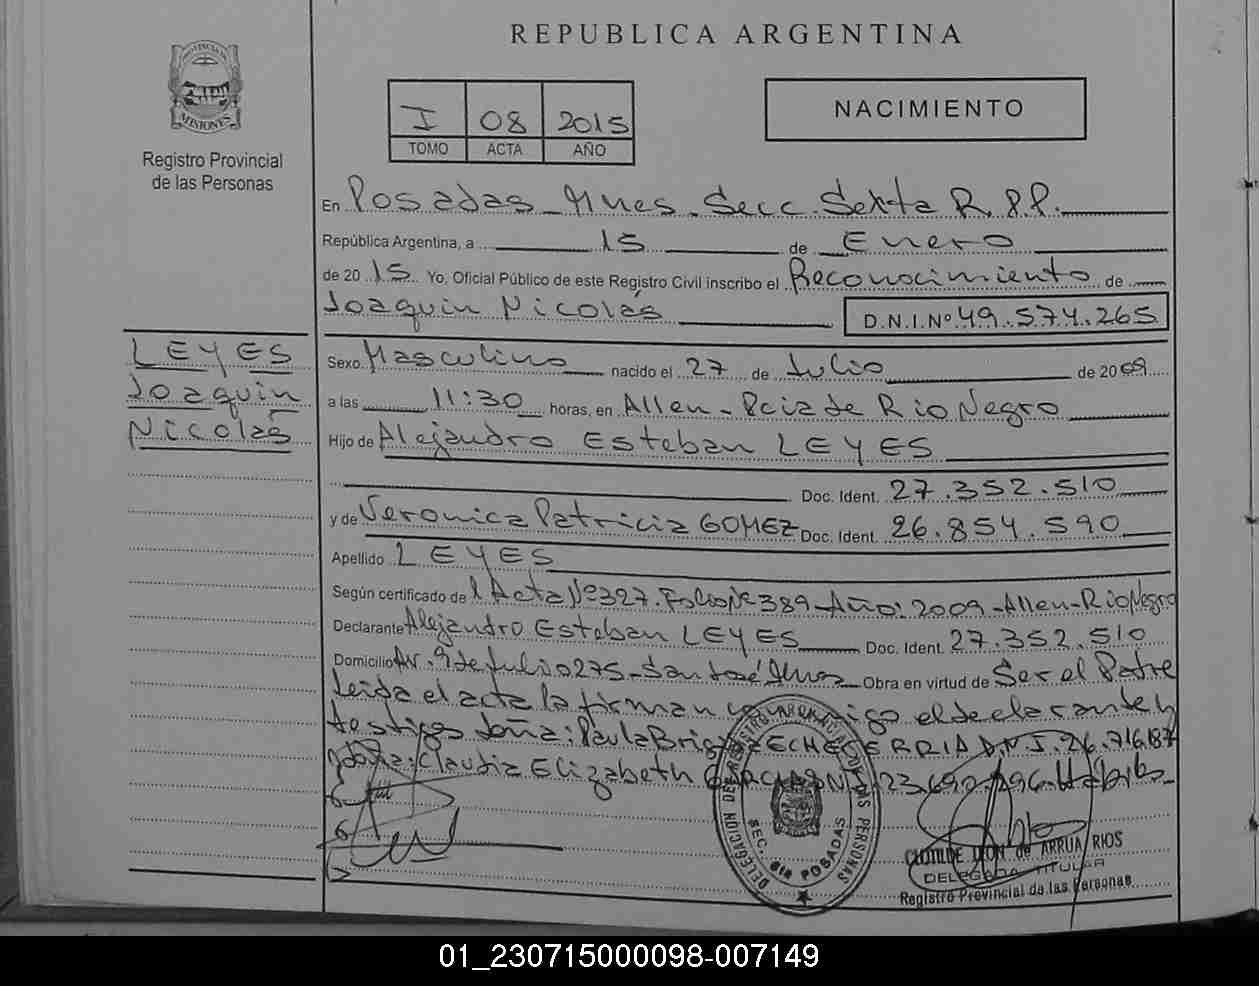 REPUBLICA ARGENTINA
PROVINCIA DE MISIONES
Registro Provincial
de las Personas
I 08 2015
TOMO ACTA AÑO
NACIMIENTO
En Posadas - Mnes. Secc. Sexta R.P.P.
República Argentina, a 15 de Enero
de 20 15 Yo, Oficial Público de este Registro Civil inscribo el Reconocimiento de
Joaquin Nicolás D.N.I.Nº 49.574.265
LEYES
Joaquin
Nicolás
Sexo Masculino nacido el 27 de Julio de 20 09
a las 11:30 horas, en Allen - Pcia de Rio Negro
Hijo de Alejandro Esteban LEYES
Doc. Ident. 27.352.510
y de Veronica Patricia GOMEZ Doc. Ident. 26.854.590
Apellido LEYES
Según certificado de l Acta Nº 327. Folio Nº 389 - Año: 2009 - Allen - Rio Negro
Declarante Alejandro Esteban LEYES Doc. Ident. 27.352.510
Domicilio Av. 9 de Julio 0275 - San José Mnes Obra en virtud de Ser el Padre
Leida el acta la firman el declarante y
testigos doña: Paula ECHEVERRIA D.N.I. 26.716.187
y doña: Claudia Elizabeth Habiles
DELEGACION DEL REGISTRO PROVINCIAL DE LAS PERSONAS
SEC. 6ta POSADAS
CLOTILDE de ARRUA RIOS
DELEGADA TITULAR
Registro Provincial de las Personas
01_230715000098-007149